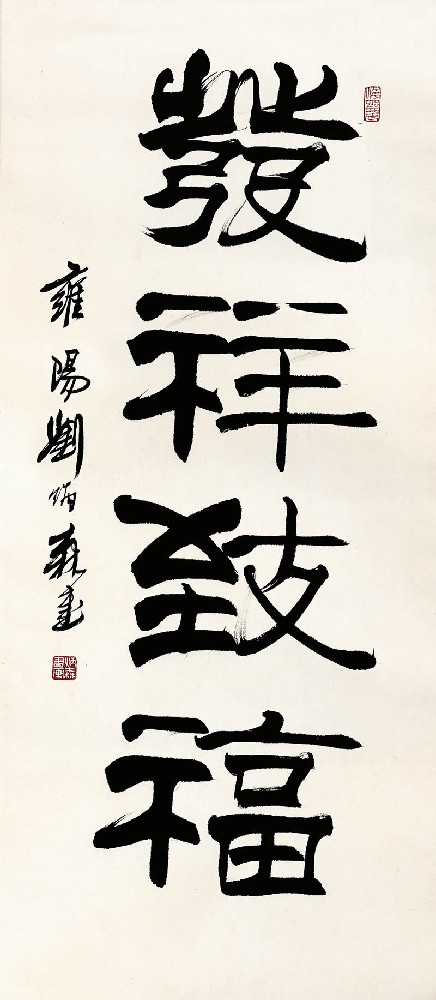 發祥致福
雍陽劉炳森書